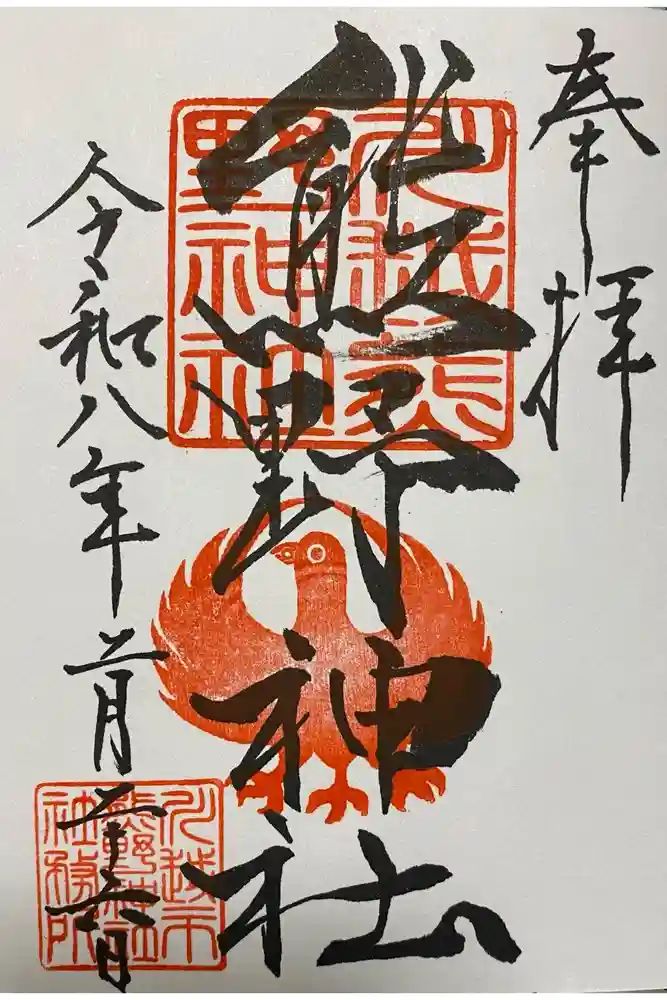 奉拝
川越熊
野神社
熊野神社
令和八年二月二十六日
川越市
熊野神社
社務所